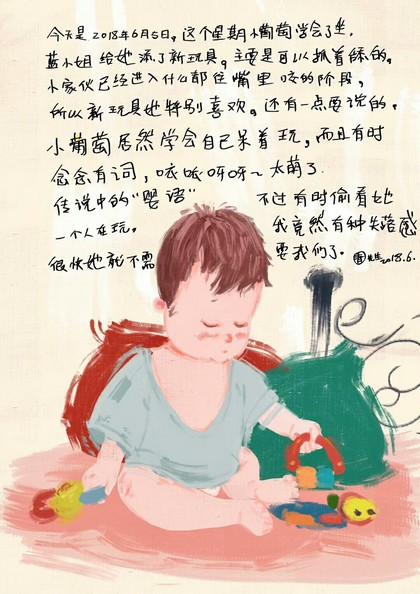 今天是2018年6月5日。这个星期小葡萄学会了坐,
蓝小姐给她添了新玩具。主要是可以抓着练的。
小家伙已经进入什么都往嘴里咬的阶段,
所以新玩具她特别喜欢。还有一点要说的。
小葡萄居然学会自己呆着玩,而且有时
念念有词,咿呀呀~太萌了.
传说中的“婴语” 不过有时偷看她
一个人在玩。 我竟然有种失落感
很快她就不需 要我们了。 2018.6.